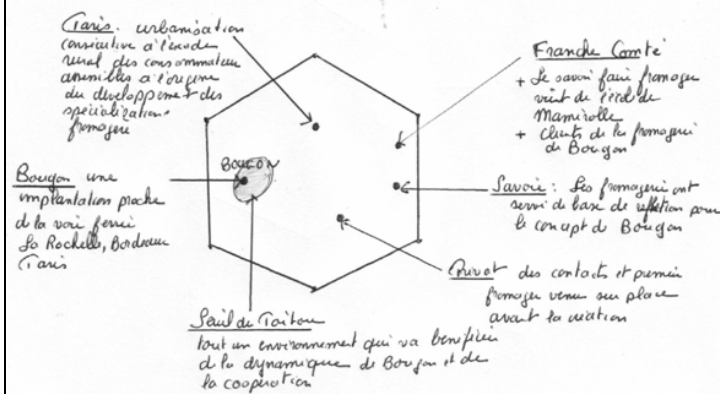 Paris. urbanisation
consécutive à l'exode
rural des consommateurs
sensibles à l'origine
du développement des
spécialisations
fromagère
Franche Comté
+ Le savoir faire fromager
vient de l'école de
Mamirolle
+ Clients de la fromagerie
de Bougon
BOUGON
Bougon une
implantation proche
de la voie ferrée
La Rochelle, Bordeaux
Paris
Savoie : Les fromageries ont
servi de base de réflexion pour
le concept de Bougon
des contacts et premier
fromager venu sur place
avant la création
Seuil du Poitou
tout un environnement qui va bénéficier
de la dynamique de Bougon et de
la coopération